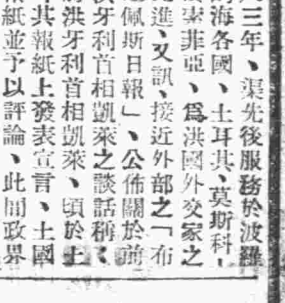 三年、渠先後服務於波羅
海各國、土耳其、莫斯科、
索菲亞、爲洪國外交家之
進、又訊、接近外部之「布
達佩斯日報」、公佈關於前
牙利首相凱萊之談話稱、
洪牙利首相凱萊、頃於土
其報紙上發表宣言、土國
報紙並予以評論、此間政界